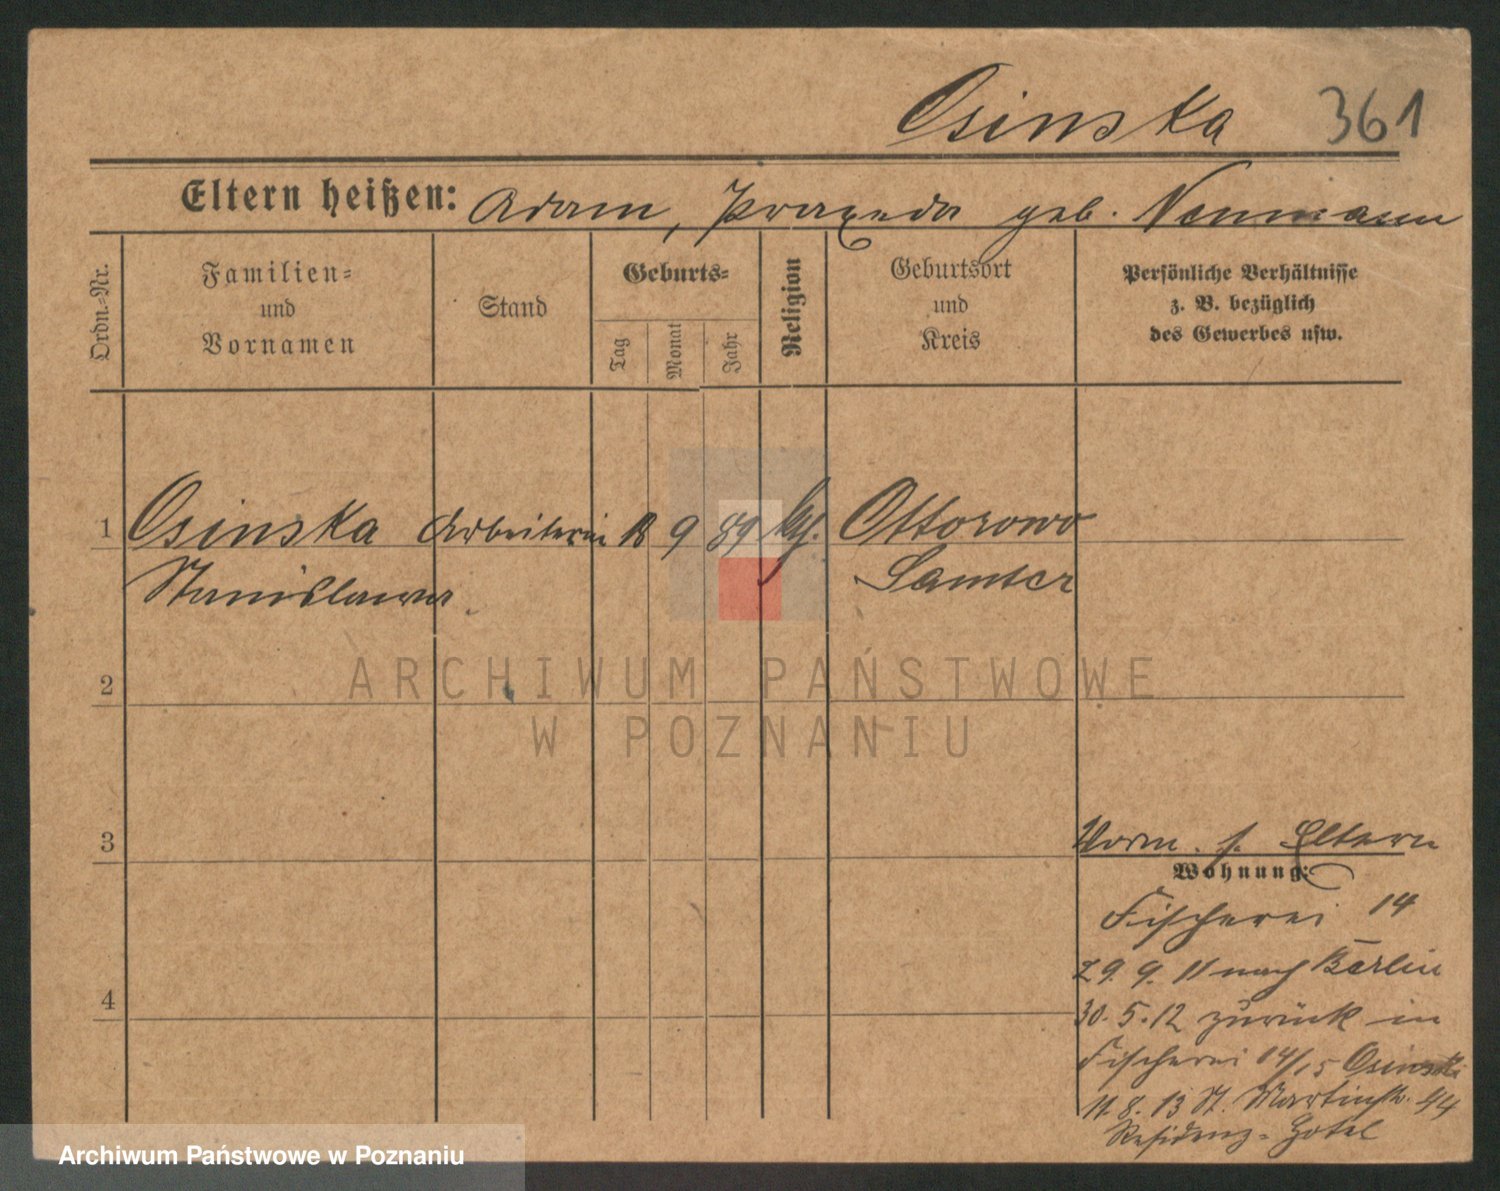 Osinska 361
Eltern heißen: Adam, Praxeda geb. Neumann
Ordn.-Nr.
Familien-
und
Vornamen
Stand
Geburts-
Tag
Monat
Jahr
Religion
Geburtsort
und
Kreis
Persönliche Verhältnisse
z. B. bezüglich
des Gewerbes usw.
1 Osinska Arbeiterin 18 9 89 kth. Ottorowo
Stanislawa Samter
2
ARCHIWUM PAŃSTWOWE
W POZNANIU
3
Vorm. s. Eltern
Wohnung:
Fischerei 14
29. 9. 11 nach Berlin
4
30. 5. 12 zurück in
Fischerei 14/15 Osinski
11. 8. 13 St. Martinstr. 44
Residenz-Hotel
Archiwum Państwowe w Poznaniu